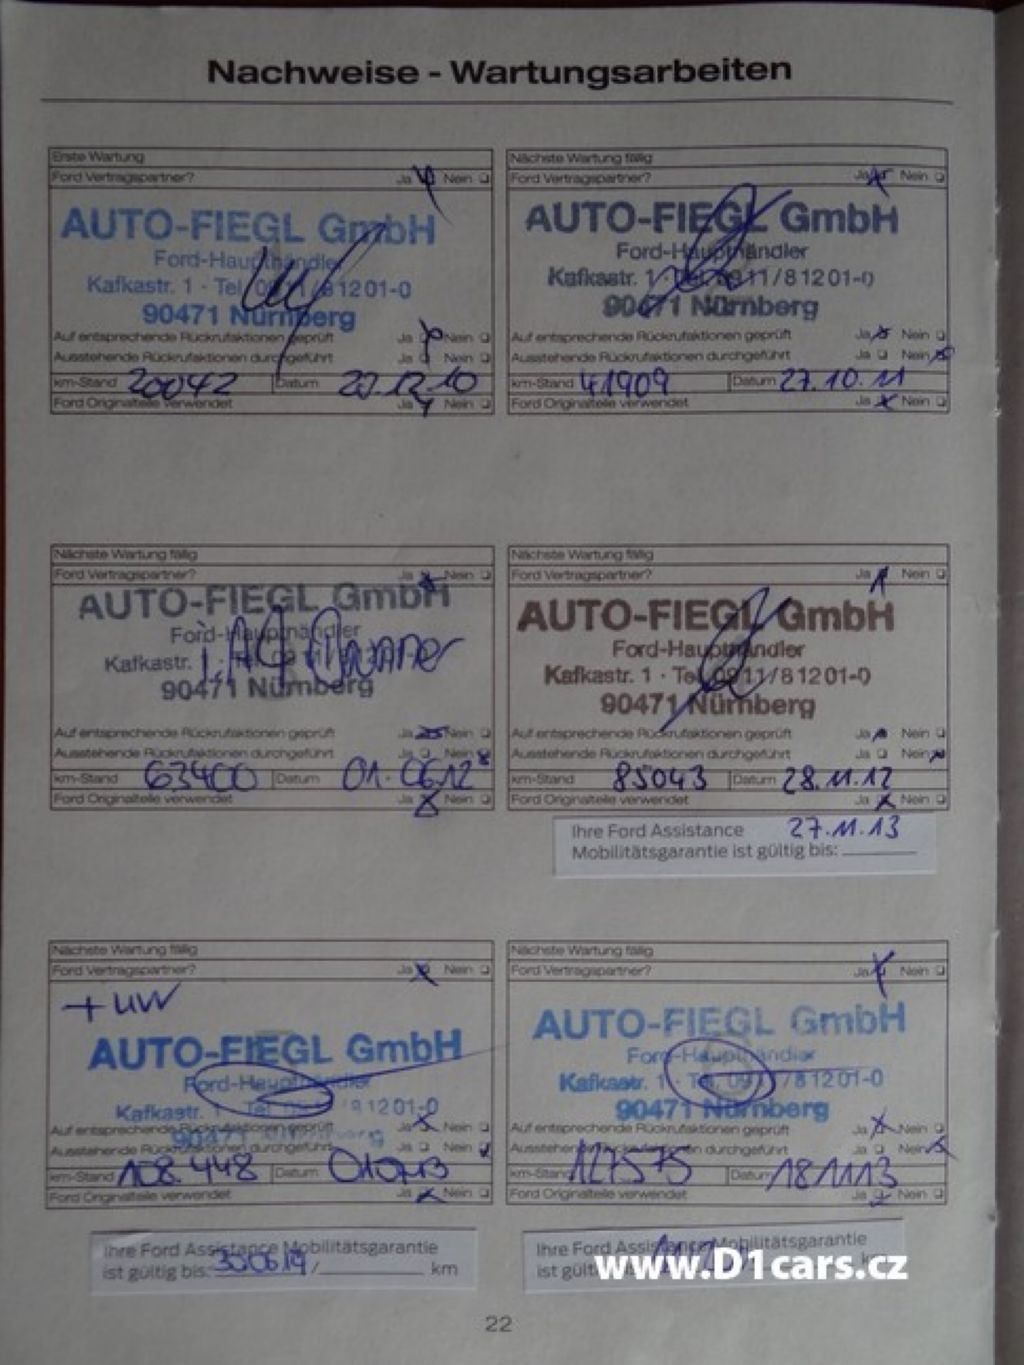 Nachweise - Wartungsarbeiten
Erste Wartung
Ford Vertragspartner? Ja Nein
AUTO-FIEGL GmbH
Ford-Haupthändler
Kafkastr. 1 · Tel. 0911/81201-0
90471 Nürnberg
Auf entsprechende Rückrufaktionen geprüft Ja Nein
Ausstehende Rückrufaktionen durchgeführt Ja Nein
km-Stand 20042 Datum 20.12.10
Ford Originalteile verwendet Ja Nein
Nächste Wartung fällig
Ford Vertragspartner? Ja Nein
AUTO-FIEGL GmbH
Ford-Haupthändler
Kafkastr. 1 · Tel. 0911/81201-0
90471 Nürnberg
Auf entsprechende Rückrufaktionen geprüft Ja Nein
Ausstehende Rückrufaktionen durchgeführt Ja Nein
km-Stand 41909 Datum 27.10.11
Ford Originalteile verwendet Ja Nein
Nächste Wartung fällig
Ford Vertragspartner? Ja Nein
AUTO-FIEGL GmbH
Ford-Haupthändler
Kafkastr. 1
90471 Nürnberg
Auf entsprechende Rückrufaktionen geprüft Ja Nein
Ausstehende Rückrufaktionen durchgeführt Ja Nein
km-Stand 63400 Datum 01.0612
Ford Originalteile verwendet Ja Nein
Nächste Wartung fällig
Ford Vertragspartner? Ja Nein
AUTO-FIEGL GmbH
Ford-Haupthändler
Kafkastr. 1 · Tel. 0911/81201-0
90471 Nürnberg
Auf entsprechende Rückrufaktionen geprüft Ja Nein
Ausstehende Rückrufaktionen durchgeführt Ja Nein
km-Stand 85043 Datum 28.11.12
Ford Originalteile verwendet Ja Nein
Ihre Ford Assistance 27.11.13
Mobilitätsgarantie ist gültig bis:
Nächste Wartung fällig
Ford Vertragspartner? Ja Nein
+ UW
AUTO-FIEGL GmbH
Ford-Haupthändler
Kafkastr. 1
90471
Auf entsprechende Rückrufaktionen geprüft Ja Nein
Ausstehende Rückrufaktionen durchgeführt Ja Nein
km-Stand 108.448 Datum 010713
Ford Originalteile verwendet Ja Nein
Ihre Ford Assistance Mobilitätsgarantie
ist gültig bis: 300614 / km
Nächste Wartung fällig
Ford Vertragspartner? Ja Nein
AUTO-FIEGL GmbH
Ford-Haupthändler
Kafkastr. 1 · Tel. 0911/81201-0
90471 Nürnberg
Auf entsprechende Rückrufaktionen geprüft Ja Nein
Ausstehende Rückrufaktionen durchgeführt Ja Nein
km-Stand 127575 Datum 181113
Ford Originalteile verwendet Ja Nein
Ihre Ford Assistance Mobilitätsgarantie
ist gültig km
www.D1cars.cz
22